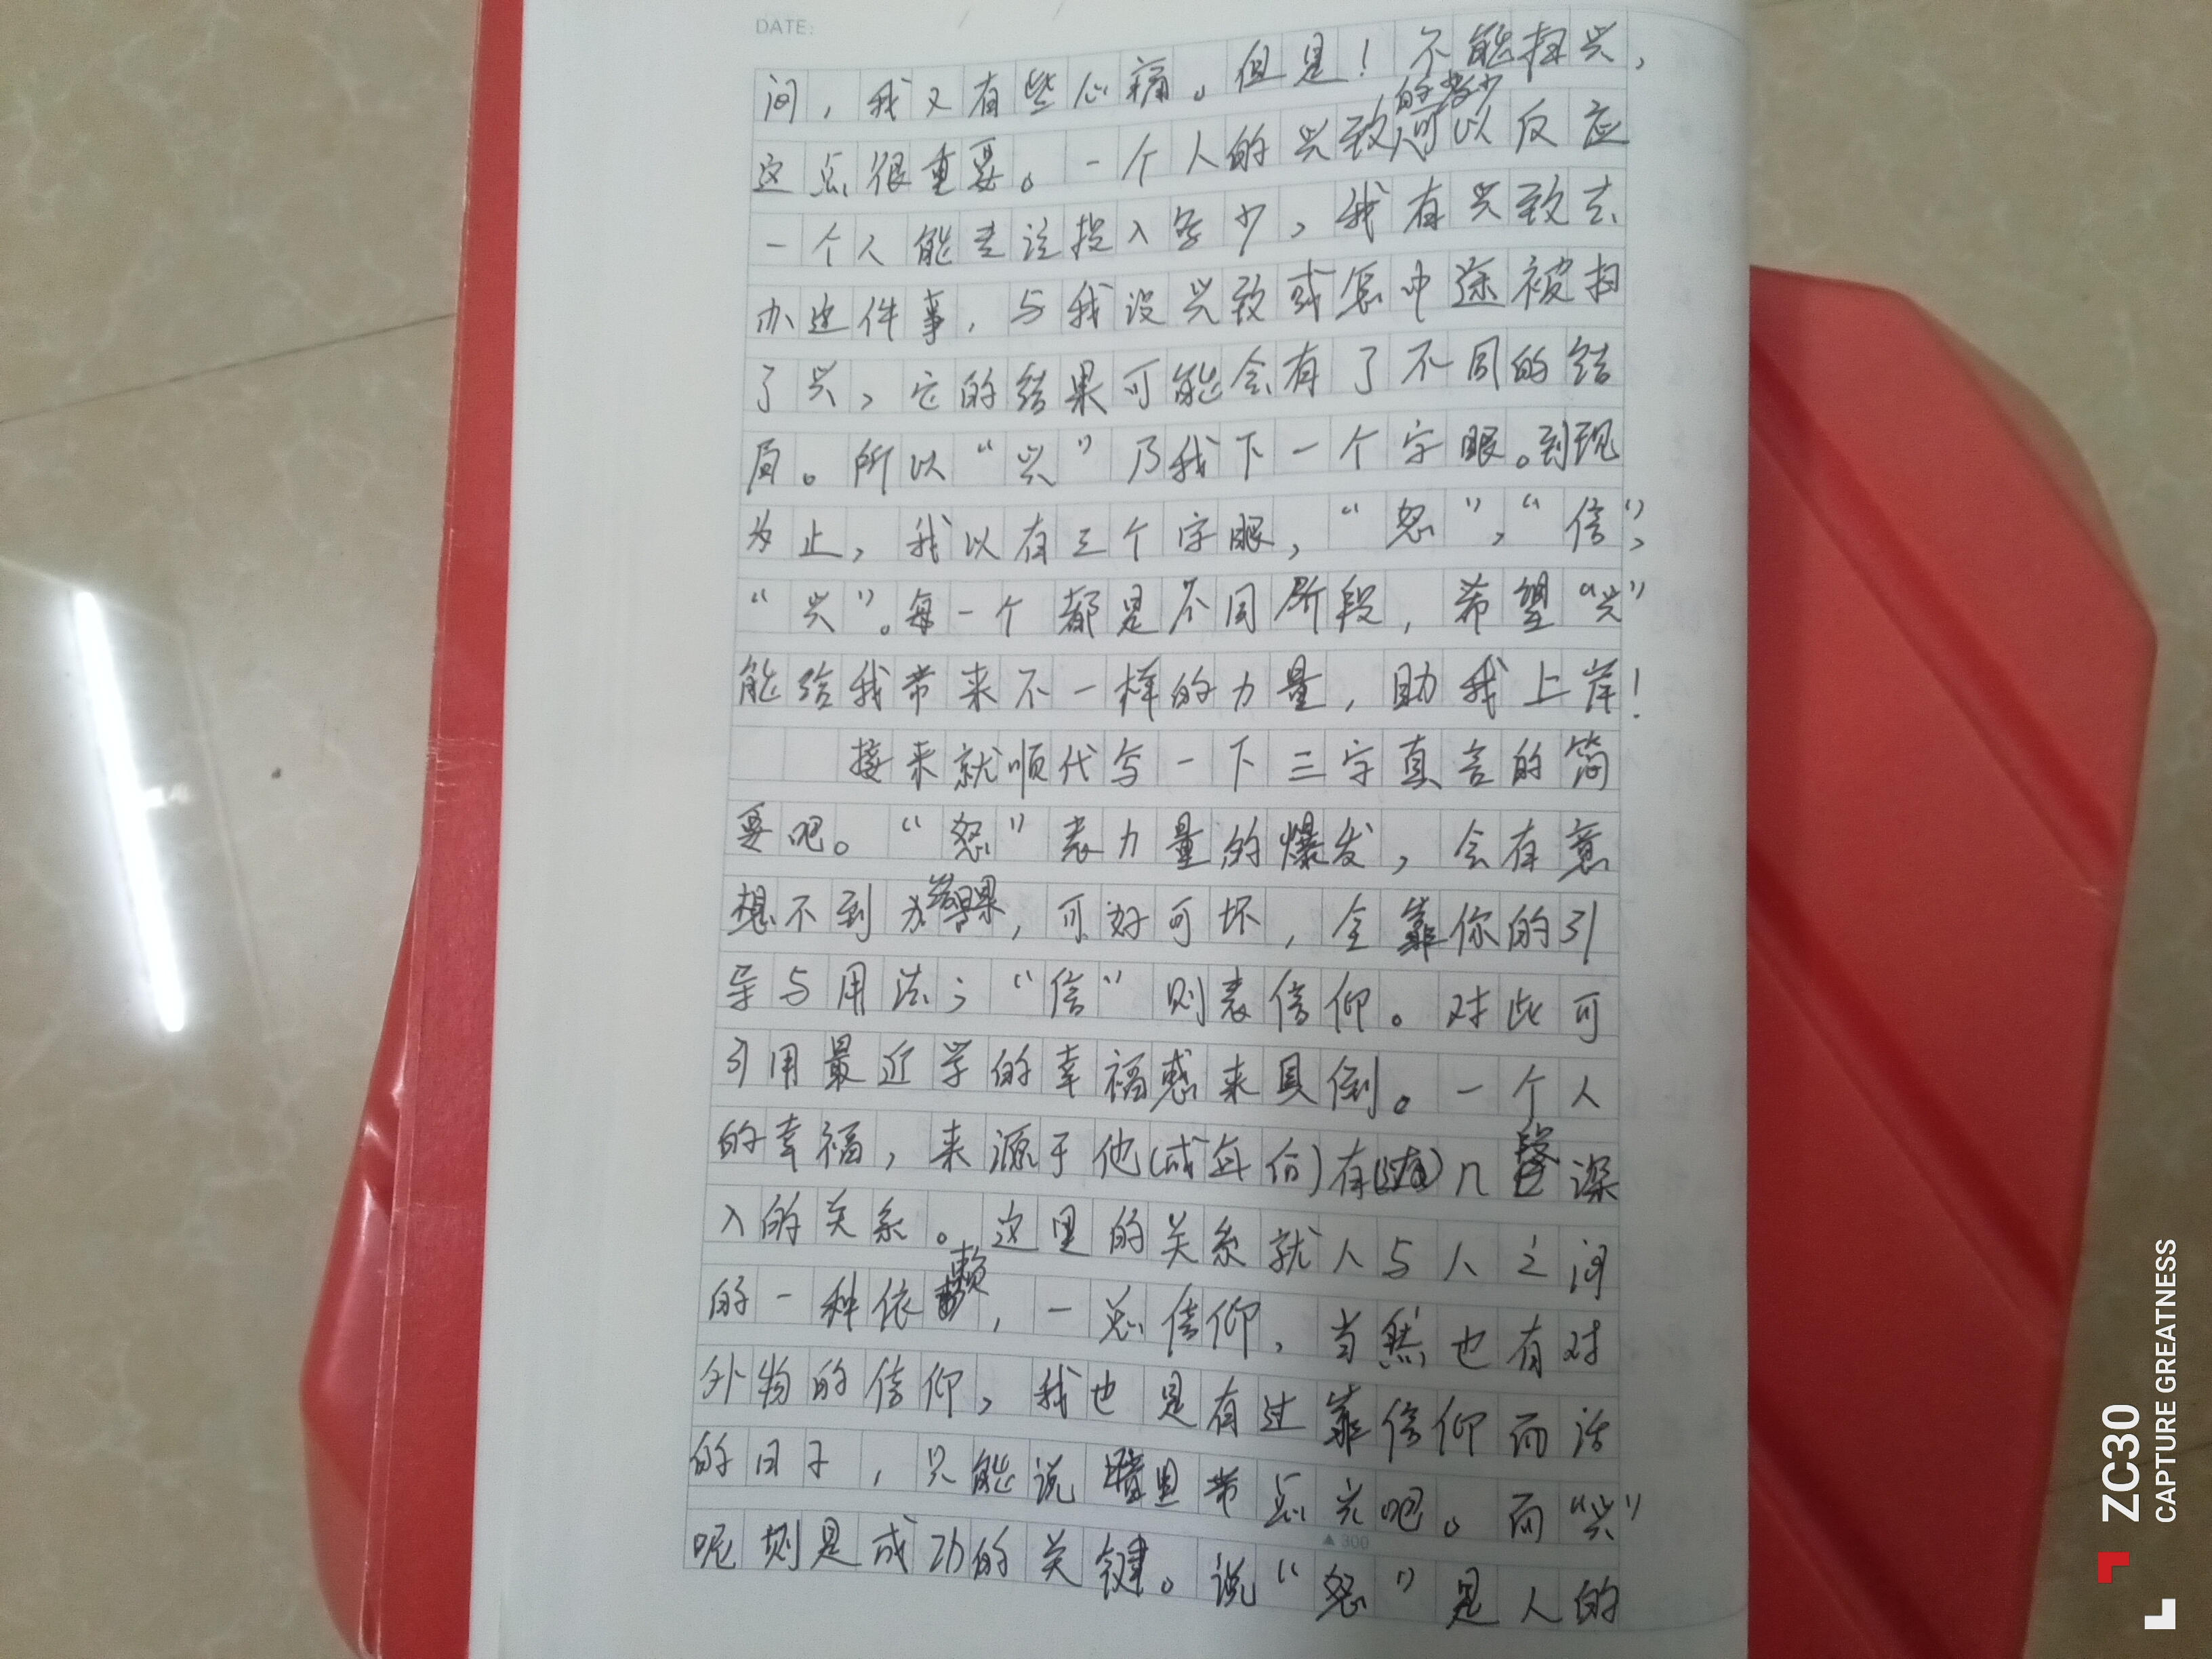 DATE:
间，我又有些心痛。但是！不能扫兴，
这点很重要。一个人的兴致的多少可以反应
一个人能专注投入多少，我有兴致去
办这件事，与我没兴致或怎中途被扫
了兴，它的结果可能会有了不同的结
局。所以“兴”乃我下一个字眼。到现
为止，我以有三个字眼，“怒”，“信”，
“兴”。每一个都是不同阶段，希望“兴”
能给我带来不一样的力量，助我上岸！
接来就顺代写一下三字真言的简
要吧。“怒”表力量的爆发，会有意
想不到效果，可好可坏，全靠你的引
导与用法；“信”则表信仰。对此可
引用最近学的幸福感来具倒。一个人
的幸福，来源于他（或每份）有几段深
入的关系。这里的关系就人与人之间
的一种依赖，一总信仰，当然也有对
外物的信仰，我也是有过靠信仰而活
的日子，只能说暗里带点光吧。而“兴”
呢则是成功的关键。说“怒”是人的
▲ 300
ZC30
CAPTURE GREATNESS